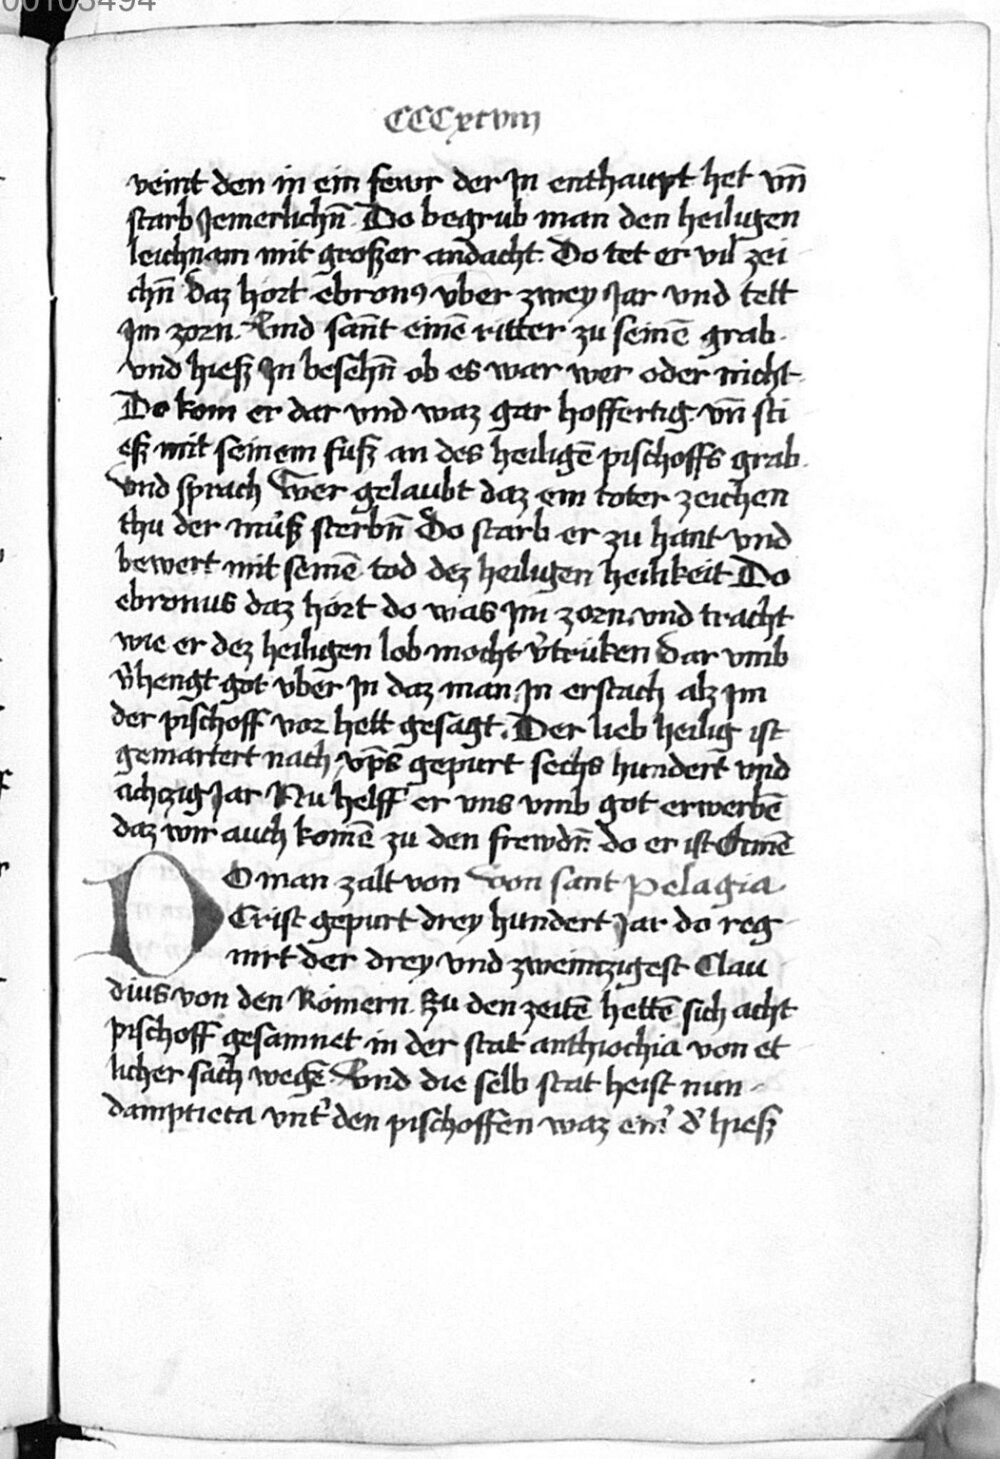 00103494
CCCxcviii
veint den in ein fewr der Jn enthaupt het vn̄
starb Jemerlichn̄. Do begrub man den heiligen
leichnam mit großer andacht. Do tet er vil zei
chn̄ daz hort ebron⁹ vber zwey Jar vnd tett
Jm zorn. Vnd sant einē ritter zu seinē grab.
vnd hieß Jn besehn̄ ob es war wer oder nicht
Do kom er dar vnd waz gar hoffertig. vn̄ sti
eß mit seinem fuß an des heiligē pischoffs grab.
vnd sprach Wer gelaubt daz ein toter zeichen
thu der můß sterbn̄ Do starb er zu hant vnd
bewert mit seinē tod dez heiligen heilikeit Do
ebronus daz hört do was Jm zorn. vnd tracht
wie er dez heiligen lob mocht v̓trüken Dar vmb
v̓hengt got vber Jn daz man Jn erstach alz Jm
der pischoff vor hett gesagt. Der lieb heilig ist
gemartert nach xp̄s gepurt sechs hundert vnd
achczig Jar Nu helff er vns vmb got erwerbē
daz wir auch komē zu den frewdn̄ do er ist Amē
DO man zalt von von sant Pelagia.
Crist gepurt drey hundert Jar do reg
nirt der drey vnd zweinzigest Clau
dius von den Römern. Zu den zeitē hettē sich acht
pischoff gesamnet in der stat anthiochia von et
licher sach wegē. Vnd die selb stat heist nun
damptieta vnt̓ den pischoffen waz ein̓ d̓ hieß